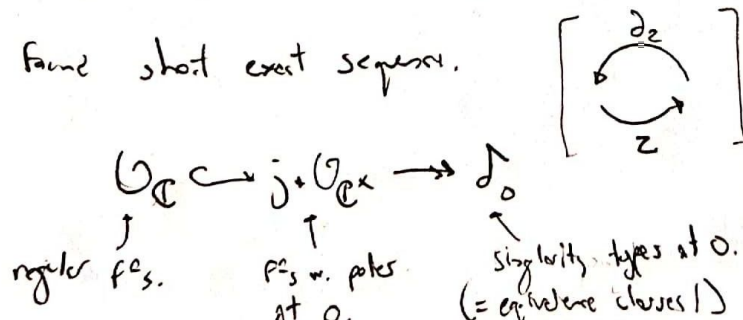 Found short exact sequence.
∂z
z
𝒪_ℂ ↪ j_* 𝒪_ℂ× ↠ δ_0
regular fⁿs.
fⁿs w. poles at 0.
singularity types at 0.
(= equivalence classes!)